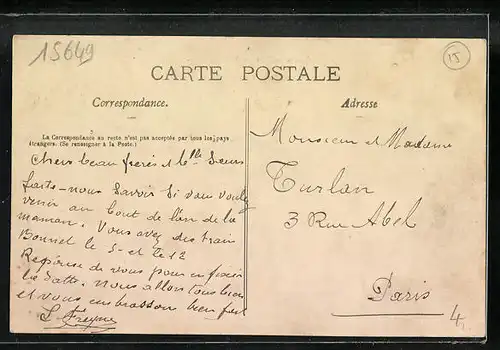 15649
15
CARTE POSTALE
Correspondance.
Adresse
La Correspondance au recto n'est pas acceptée par tous les pays
étrangers. (Se renseigner à la Poste.)
Chers beau frères et belle Sœurs
faite-nous Savoir Si vous voulez
venir au bout de l'an de la
maman. Vous avez des train
Bonnet le 5 et le 12
Réponse de vous pour en
la datte. nous allons tous bien
et vous embrassons bien fort
Monsieur et Madame
Turlan
3 Rue Abel
Paris
4